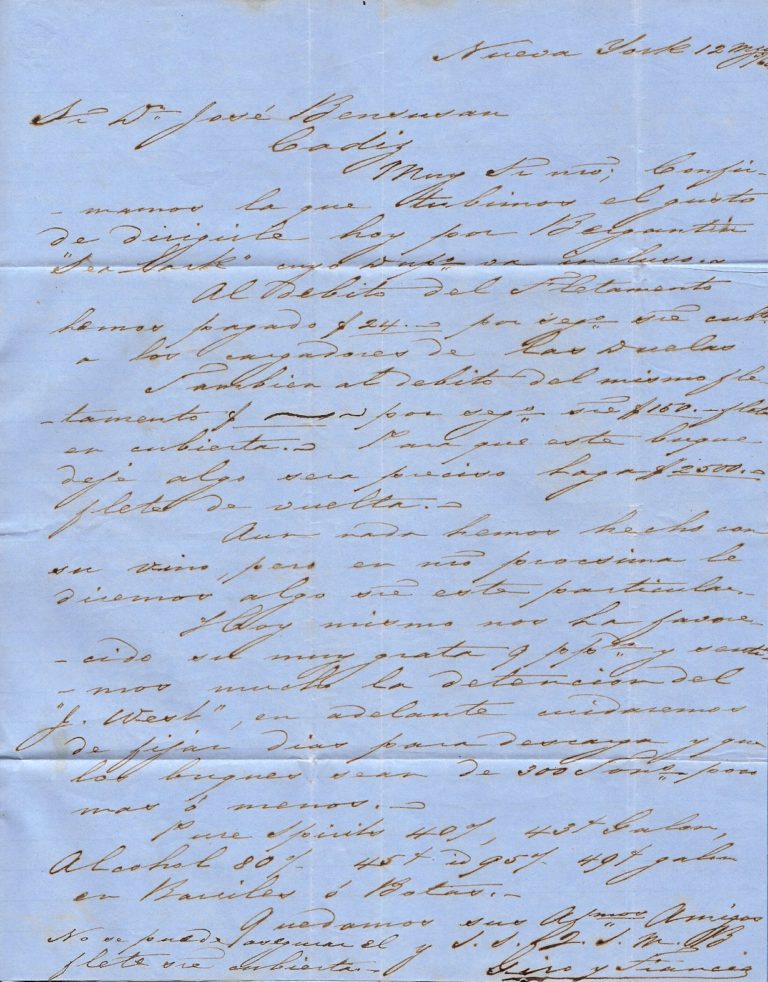 Nueva York 12
Sr. Dn. José Bensusan
Cadiz
Muy Sr. mio; Confir-
-mamos la que tubimos el gusto
de dirigirle hoy por Bergantin
"Sea Lark" cuyo dupo. va incluso.
Al Debito del Fletamento
hemos pagado $24.- por sego. sre. cubta.
a los cargadores de las duelas
Tambien al debito del mismo fle-
-tamento $ por sego. sre. $150.- flete
en cubierta.- Para que este buque
deje algo sera preciso haga $2500.-
flete de vuelta.-
Aun nada hemos hecho con
su vino, pero en nra. procsima le
diremos algo sre. este particular.-
Hoy mismo nos ha favore-
-cido su muy grata 9 ppdo. y senti-
-mos mucho la detencion del
"J. West", en adelante cuidaremos
de fijar dias para descarga y que
los buques sean de 300 Tons. poco
mas ó menos.-
Pure Spirits 40%, 43¢ Galon,
Alcohol 80% 45¢ id 95% 49¢ galon
en Barriles ó Botas.-
Quedamos sus Afmos. Amigos
y S. S. Q. S. M. B
No se puede asegurar el
flete sre. cubierta.-
Giro y Francia